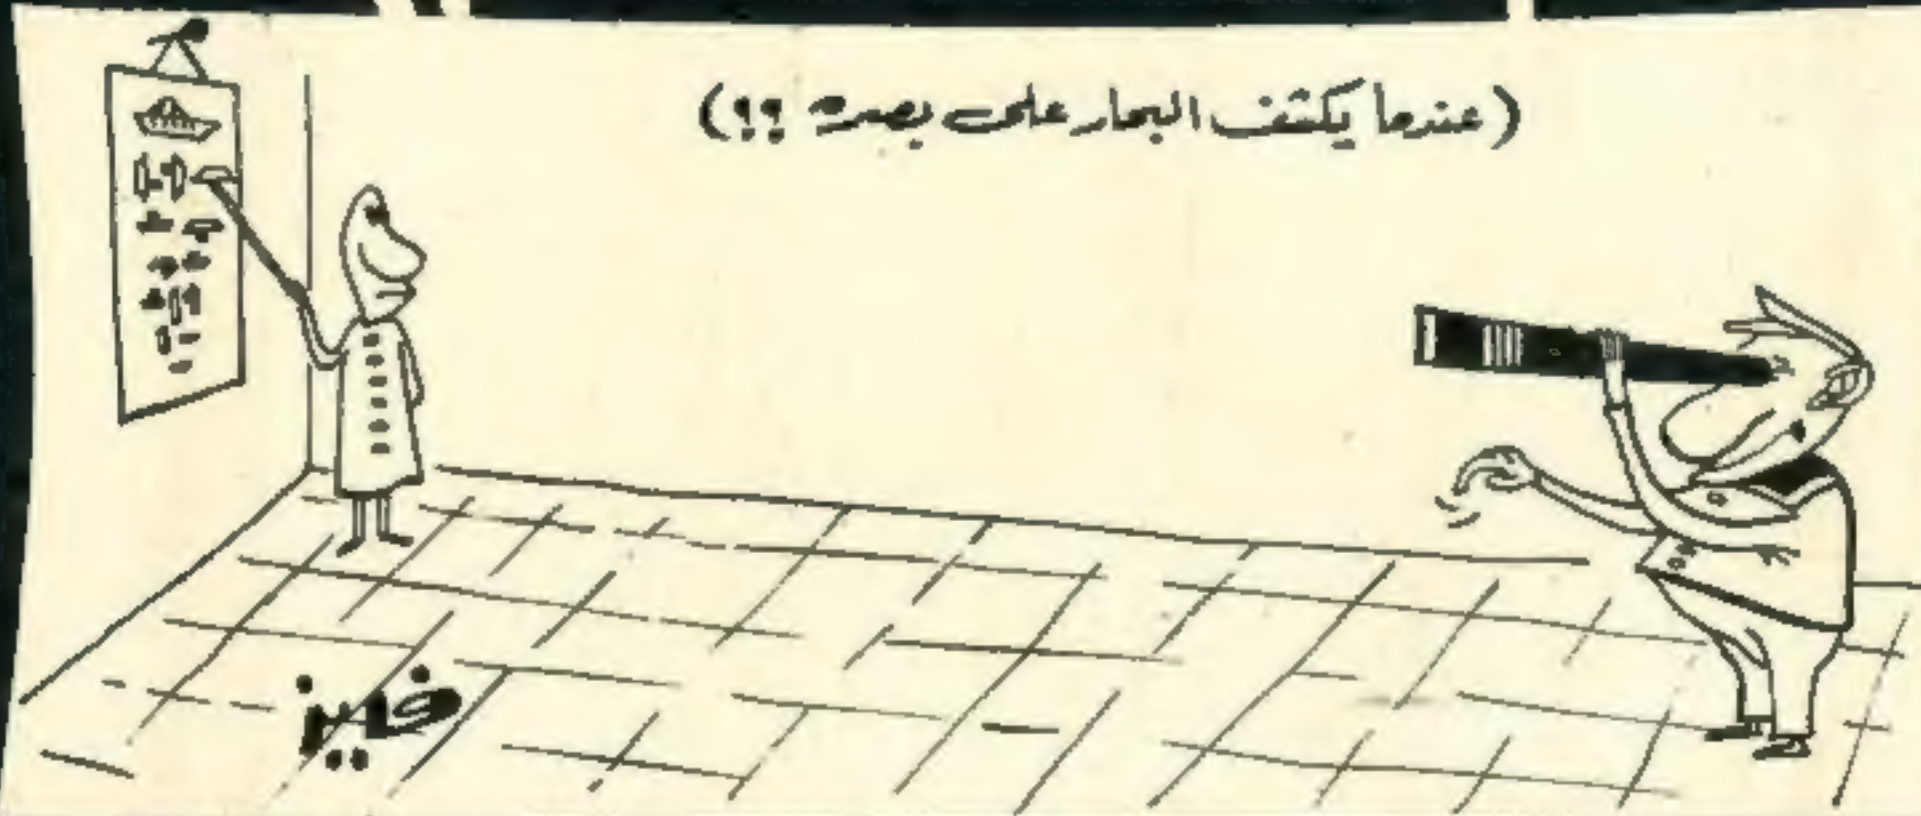 (عندما يكشف البحار على بصره ؟؟)
فايز